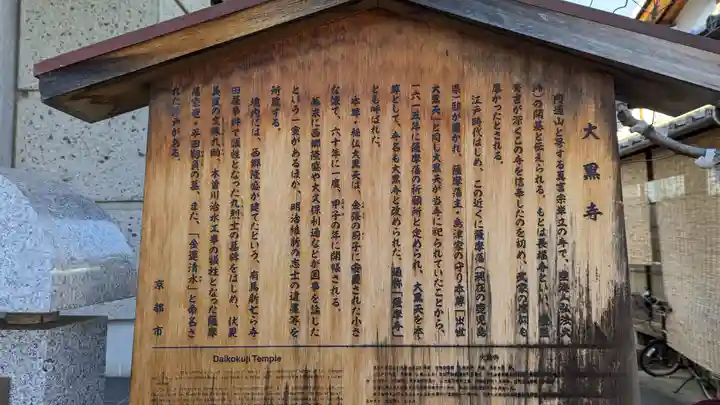 大黒寺
円通山と号する真言宗単立の寺で、空海(弘法大
師)の開基と伝えられる。もとは長福寺といい、
秀吉が深くこの寺を信奉したのを初め、武家の信仰も
厚かったとされる。
江戸時代はじめ、この近くに薩摩藩(現在の鹿児島
県)邸が置かれ、薩摩藩主・島津家の守り本尊「出世
大黒天」と同じ大黒天が当寺に祀られていたことから、
一六一五年に薩摩藩の祈願所と定められ、大黒天を本
尊として、寺名も大黒寺と改められた。通称「薩摩寺」
とも呼ばれた。
本尊・秘仏大黒天は、金張の厨子に安置された小さ
な像で、六十年に一度、甲子の年に開帳される。
幕末に西郷隆盛や大久保利通などが国事を論じた
という一室があるほか、明治維新の志士の遺墨等を
所蔵する。
境内には、西郷隆盛が建てたという、有馬新七ら寺
田屋事件で犠牲となった九烈士の墓碑をはじめ、伏見
義民の文殊九助、木曽川治水工事の犠牲となった薩摩
藩家老・平田靱負の墓、また、「金運清水」と命名さ
れた井戸がある。
京都市
Daikokuji Temple
大黒寺